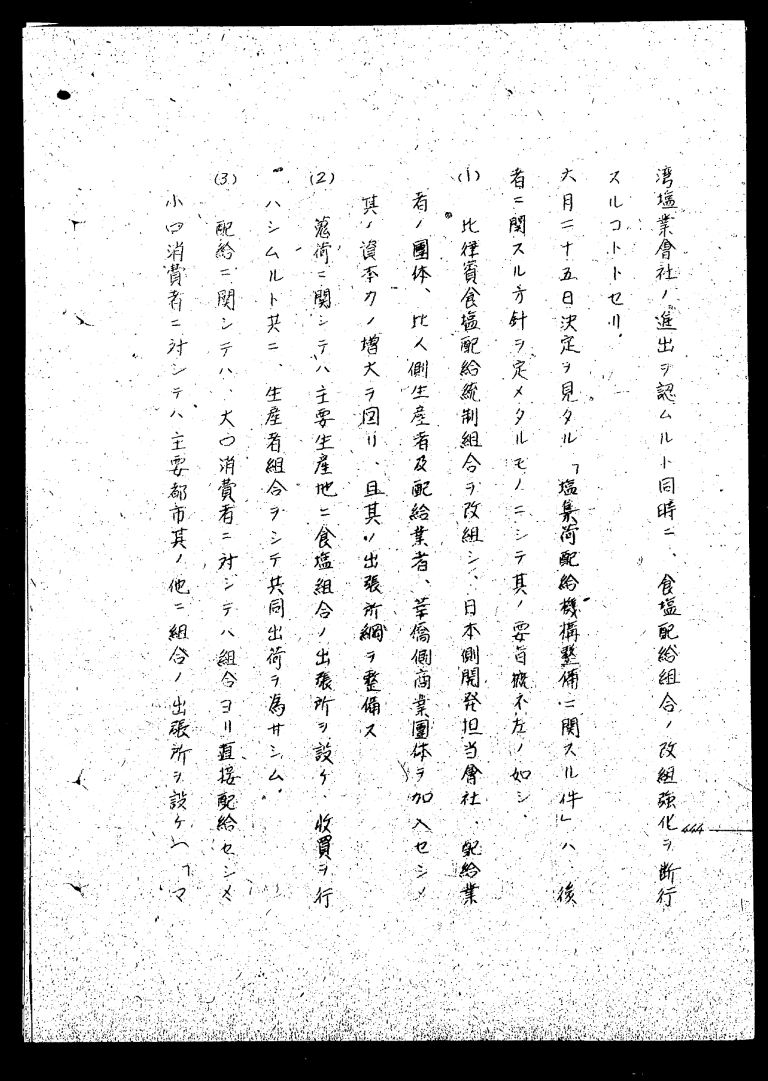 湾塩業會社ノ進出ヲ認ムルト同時ニ、食塩配給組合ノ改組強化ヲ断行
スルコトトセリ。
六月二十五日決定ヲ見タル「塩集荷配給機構整備ニ関スル件」ハ、後
者ニ関スル方針ヲ定メタルモノニシテ其ノ要旨概ネ左ノ如シ。
(1) 比律賓食塩配給統制組合ヲ改組シ、日本側開発担当會社、配給業
者ノ團体、比人側生産者及配給業者、華僑側商業團体ヲ加入セシメ
其ノ資本力ノ増大ヲ図リ、且其ノ出張所網ヲ整備ス
(2) 蒐荷ニ関シテハ主要生産地ニ食塩組合ノ出張所ヲ設ケ、收買ヲ行
ハシムルト共ニ、生産者組合ヲシテ共同出荷ヲ為サシム。
(3) 配給ニ関シテハ、大口消費者ニ対シテハ組合ヨリ直接配給セシメ
小口消費者ニ対シテハ主要都市其ノ他ニ組合ノ出張所ヲ設ケ(「マ
444